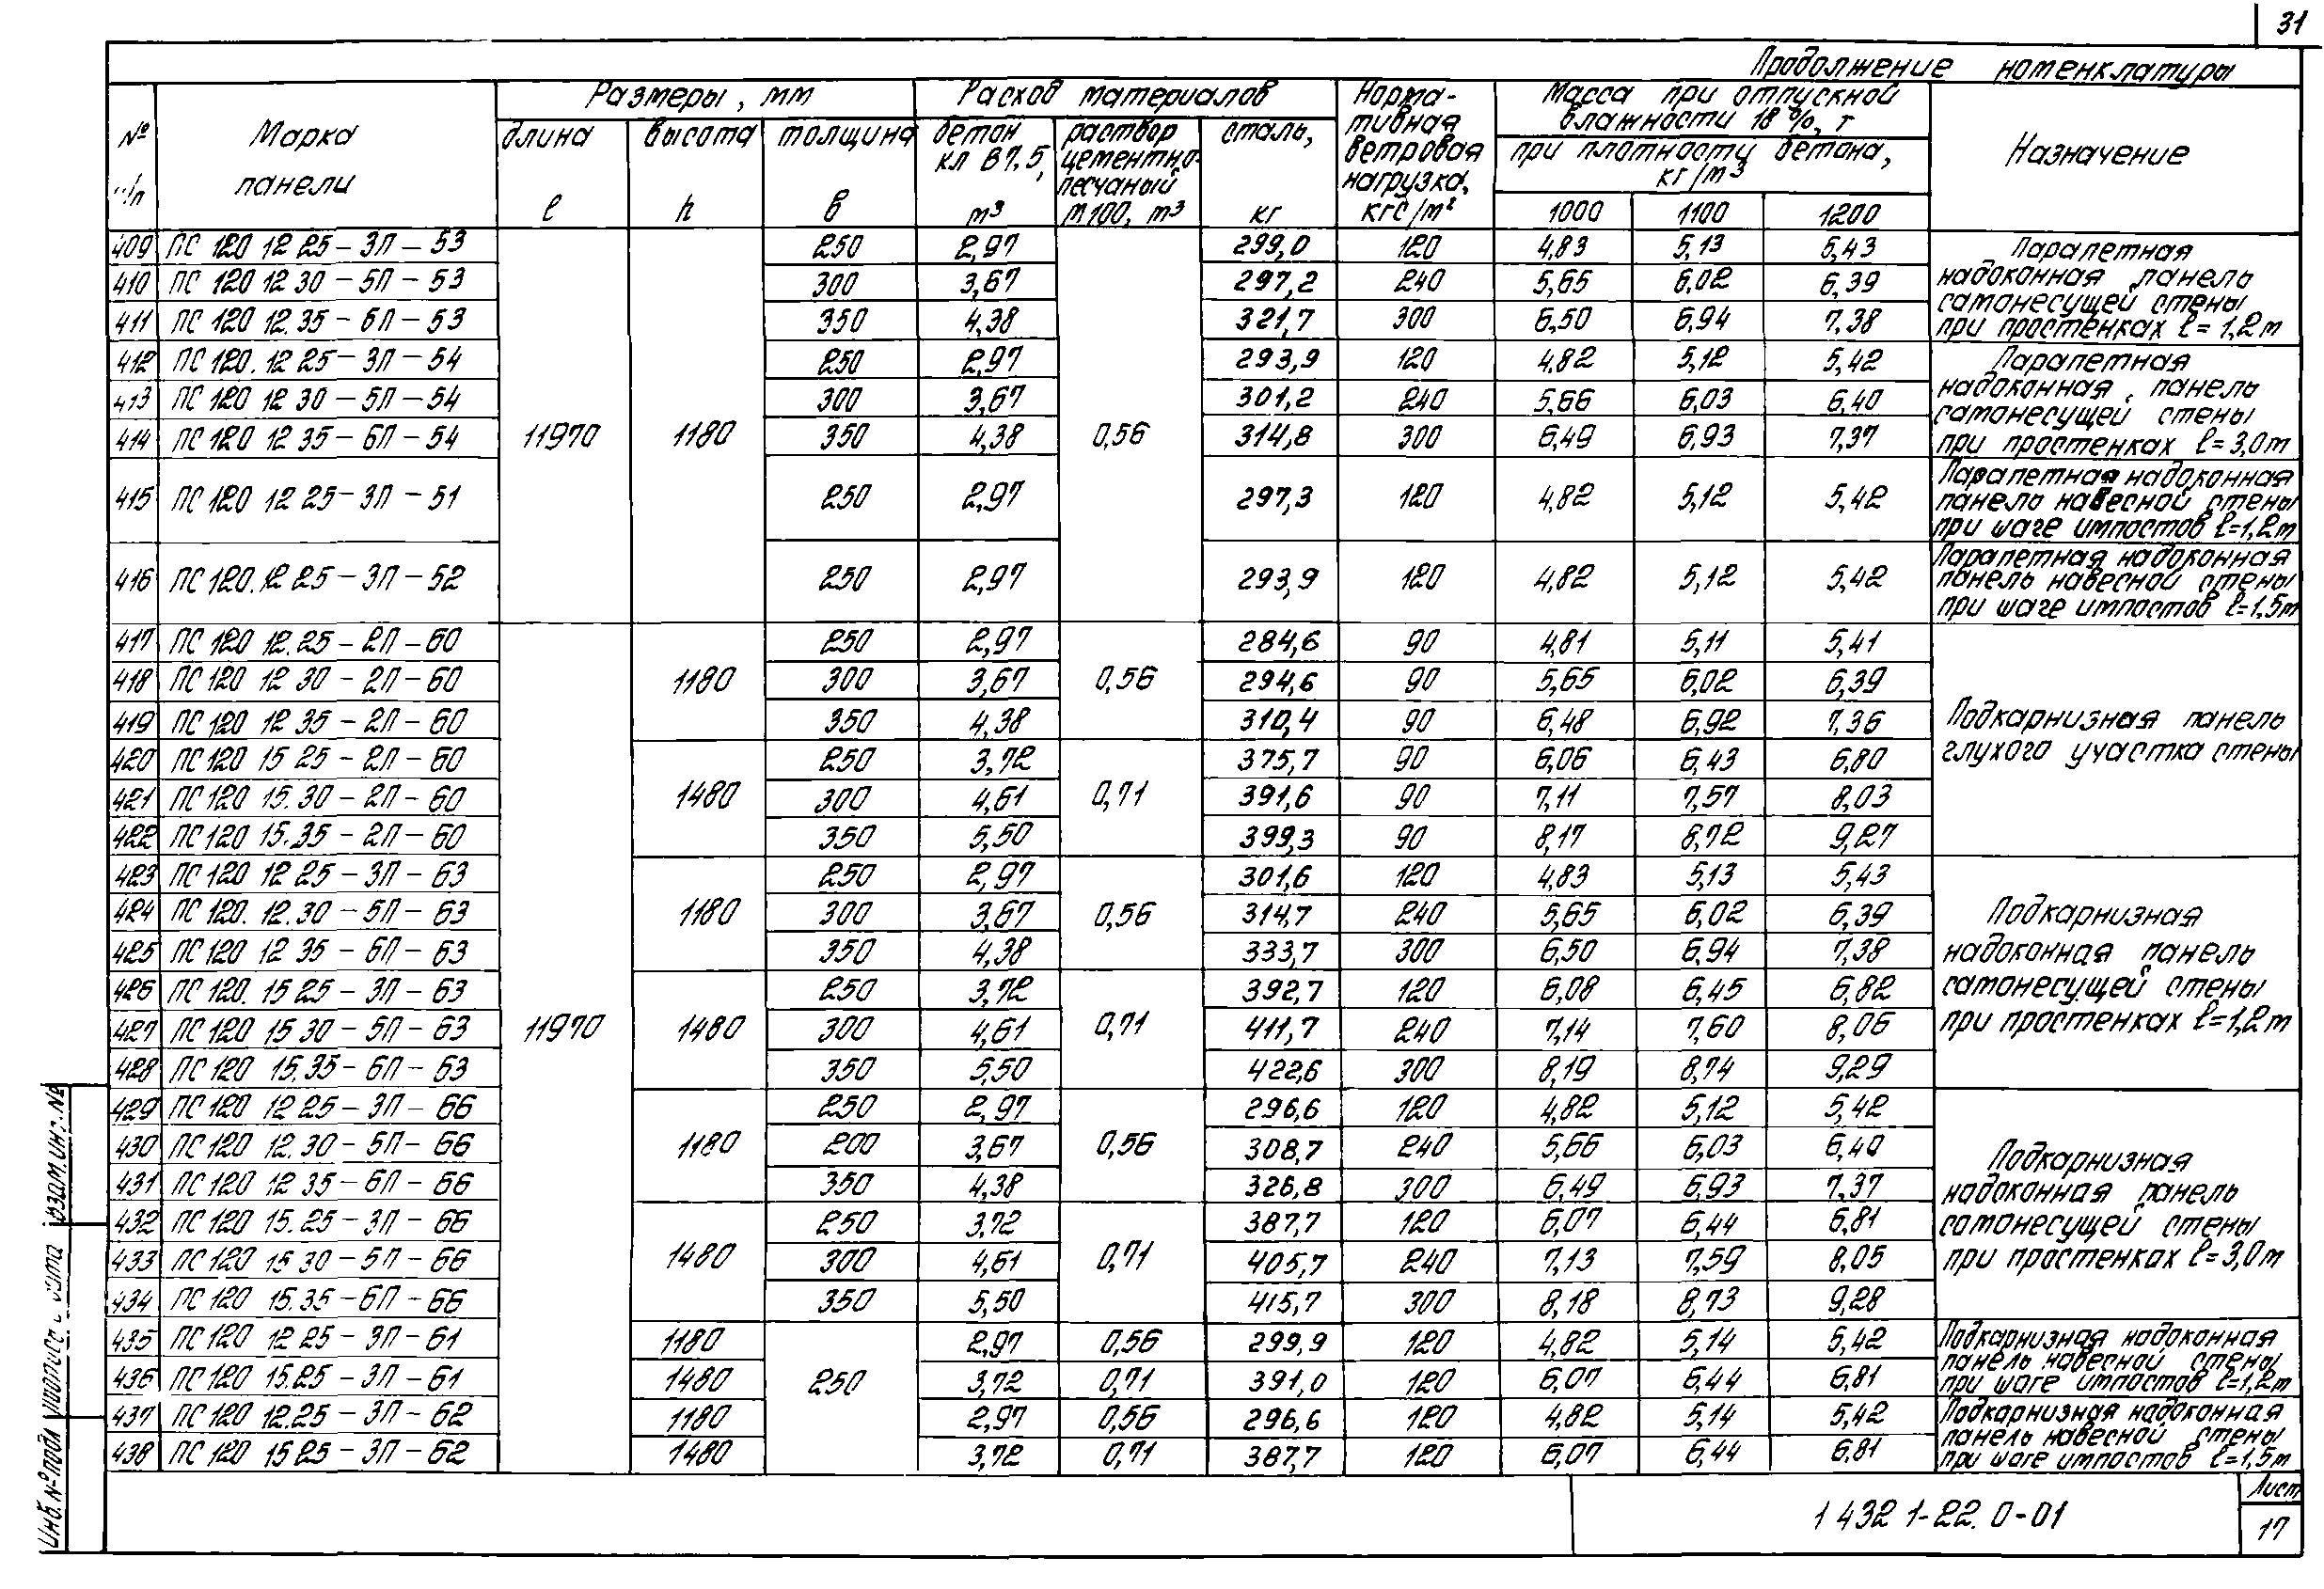 31
Продолжение номенклатуры
№ п/п
Марка панели
Размеры, мм
длина l
высота h
толщина b
Расход материалов
бетон кл В7,5, м³
раствор цементно-песчаный М100, м³
сталь, кг
Норма-тивная ветровая нагрузка, кгс/м²
Масса при отпускной влажности 18%, т
при плотности бетона, кг/м³
1000 1100 1200
Назначение
409 ПС 120 12 25-3П-53 250 2,97 299,0 120 4,83 5,13 5,43
410 ПС 120 12 30-5П-53 300 3,67 297,2 240 5,65 6,02 6,39
411 ПС 120 12.35-6П-53 350 4,38 321,7 300 6,50 6,94 7,38
Парапетная
надоконная панель
самонесущей стены
при простенках l=1,2м
412 ПС 120. 12 25-3П-54 250 2,97 293,9 120 4,82 5,12 5,42
413 ПС 120 12 30-5П-54 300 3,67 301,2 240 5,66 6,03 6,40
414 ПС 120 12 35-6П-54 11970 1180 350 4,38 0,56 314,8 300 6,49 6,93 7,37
Парапетная
надоконная панель
самонесущей стены
при простенках l=3,0м
415 ПС 120 12 25-3П-51 250 2,97 297,3 120 4,82 5,12 5,42
Парапетная надоконная
панель навесной стены
при шаге импостов l=1,2м
416 ПС 120.12 25-3П-52 250 2,97 293,9 120 4,82 5,12 5,42
Парапетная надоконная
панель навесной стены
при шаге импостов l=1,5м
417 ПС 120 12.25-2П-60 250 2,97 284,6 90 4,81 5,11 5,41
418 ПС 120 12 30-2П-60 1180 300 3,67 0,56 294,6 90 5,65 6,02 6,39
419 ПС 120 12 35-2П-60 350 4,38 310,4 90 6,48 6,92 7,36
420 ПС 120 15 25-2П-60 250 3,72 375,7 90 6,06 6,43 6,80
421 ПС 120 15.30-2П-60 1480 300 4,61 0,71 391,6 90 7,11 7,57 8,03
422 ПС 120 15.35-2П-60 350 5,50 399,3 90 8,17 8,72 9,27
Подкарнизная панель
глухого участка стены
423 ПС 120 12 25-3П-63 250 2,97 301,6 120 4,83 5,13 5,43
424 ПС 120. 12.30-5П-63 1180 300 3,67 0,56 314,7 240 5,65 6,02 6,39
425 ПС 120 12 35-6П-63 350 4,38 333,7 300 6,50 6,94 7,38
426 ПС 120. 15 25-3П-63 250 3,72 392,7 120 6,08 6,45 6,82
427 ПС 120 15.30-5П-63 11970 1480 300 4,61 0,71 411,7 240 7,14 7,60 8,06
428 ПС 120 15.35-6П-63 350 5,50 422,6 300 8,19 8,74 9,29
Подкарнизная
надоконная панель
самонесущей стены
при простенках l=1,2м
429 ПС 120 12 25-3П-66 250 2,97 296,6 120 4,82 5,12 5,42
430 ПС 120 12.30-5П-66 1180 200 3,67 0,56 308,7 240 5,66 6,03 6,40
431 ПС 120 12 35-6П-66 350 4,38 326,8 300 6,49 6,93 7,37
432 ПС 120 15.25-3П-66 250 3,72 387,7 120 6,07 6,44 6,81
433 ПС 120 15 30-5П-66 1480 300 4,61 0,71 405,7 240 7,13 7,59 8,05
434 ПС 120 15.35-6П-66 350 5,50 415,7 300 8,18 8,73 9,28
Подкарнизная
надоконная панель
самонесущей стены
при простенках l=3,0м
435 ПС 120 12 25-3П-61 1180 2,97 0,56 299,9 120 4,82 5,14 5,42
436 ПС 120 15.25-3П-61 1480 250 3,72 0,71 391,0 120 6,07 6,44 6,81
Подкарнизная надоконная
панель навесной стены
при шаге импостов l=1,2м
437 ПС 120 12.25-3П-62 1180 2,97 0,56 296,6 120 4,82 5,14 5,42
438 ПС 120 15 25-3П-62 1480 3,72 0,71 387,7 120 6,07 6,44 6,81
Подкарнизная надоконная
панель навесной стены
при шаге импостов l=1,5м
1 432 1-22. 0-01
Лист
17
Инв. № подл
взам. инв. №